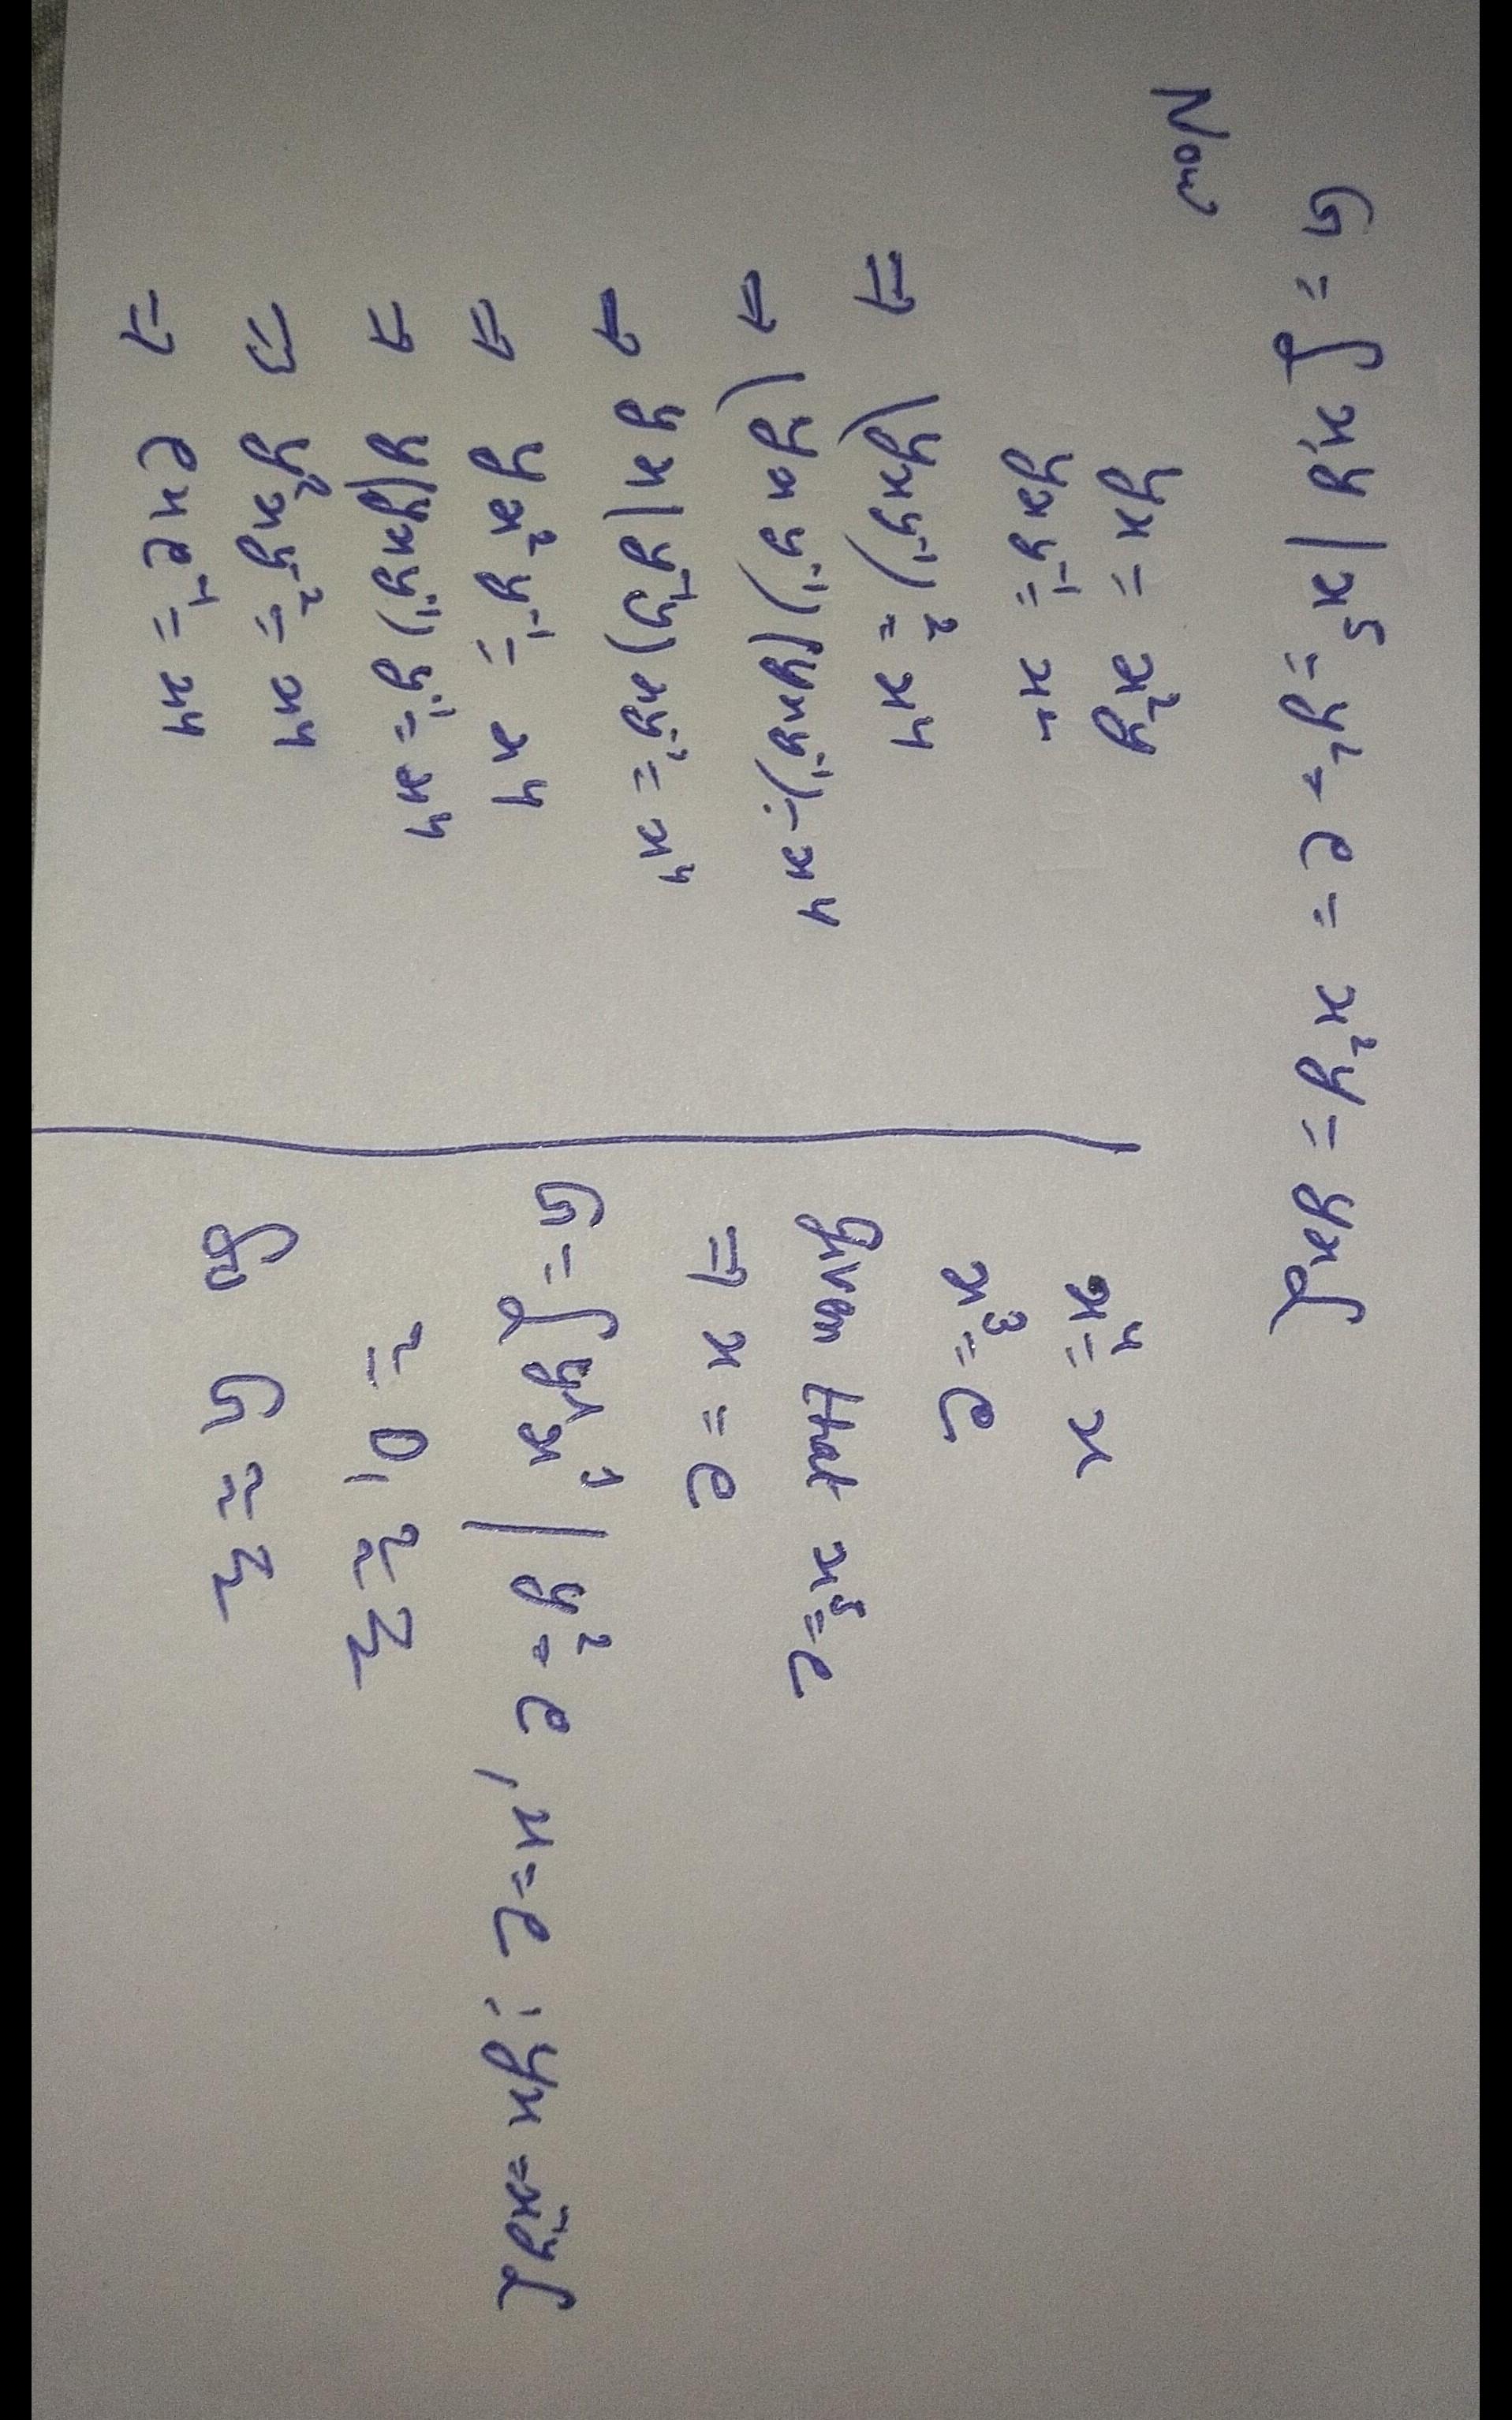 G = { x, y | x⁵ = y² = e = x²y = yx }
Now
yx = x²y
yxy⁻¹ = x²
⇒ (yxy⁻¹)² = x⁴
⇒ (yxy⁻¹)(yxy⁻¹) = x⁴
⇒ yx(y⁻¹y)xy⁻¹ = x⁴
⇒ yx²y⁻¹ = x⁴
⇒ y(yxy⁻¹)y⁻¹ = x⁴
⇒ y²xy⁻² = x⁴
⇒ exe⁻¹ = x⁴
x⁴ = x
x³ = e
given that x⁵ = e
⇒ x = e
G = { y, x | y² = e, x = e ; yx = x²y }
≈
≈ Z₂
So G ≈ Z₂